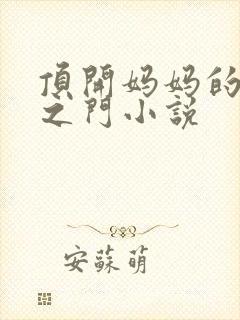 頂開妈妈的
之門小説
安蘇萌